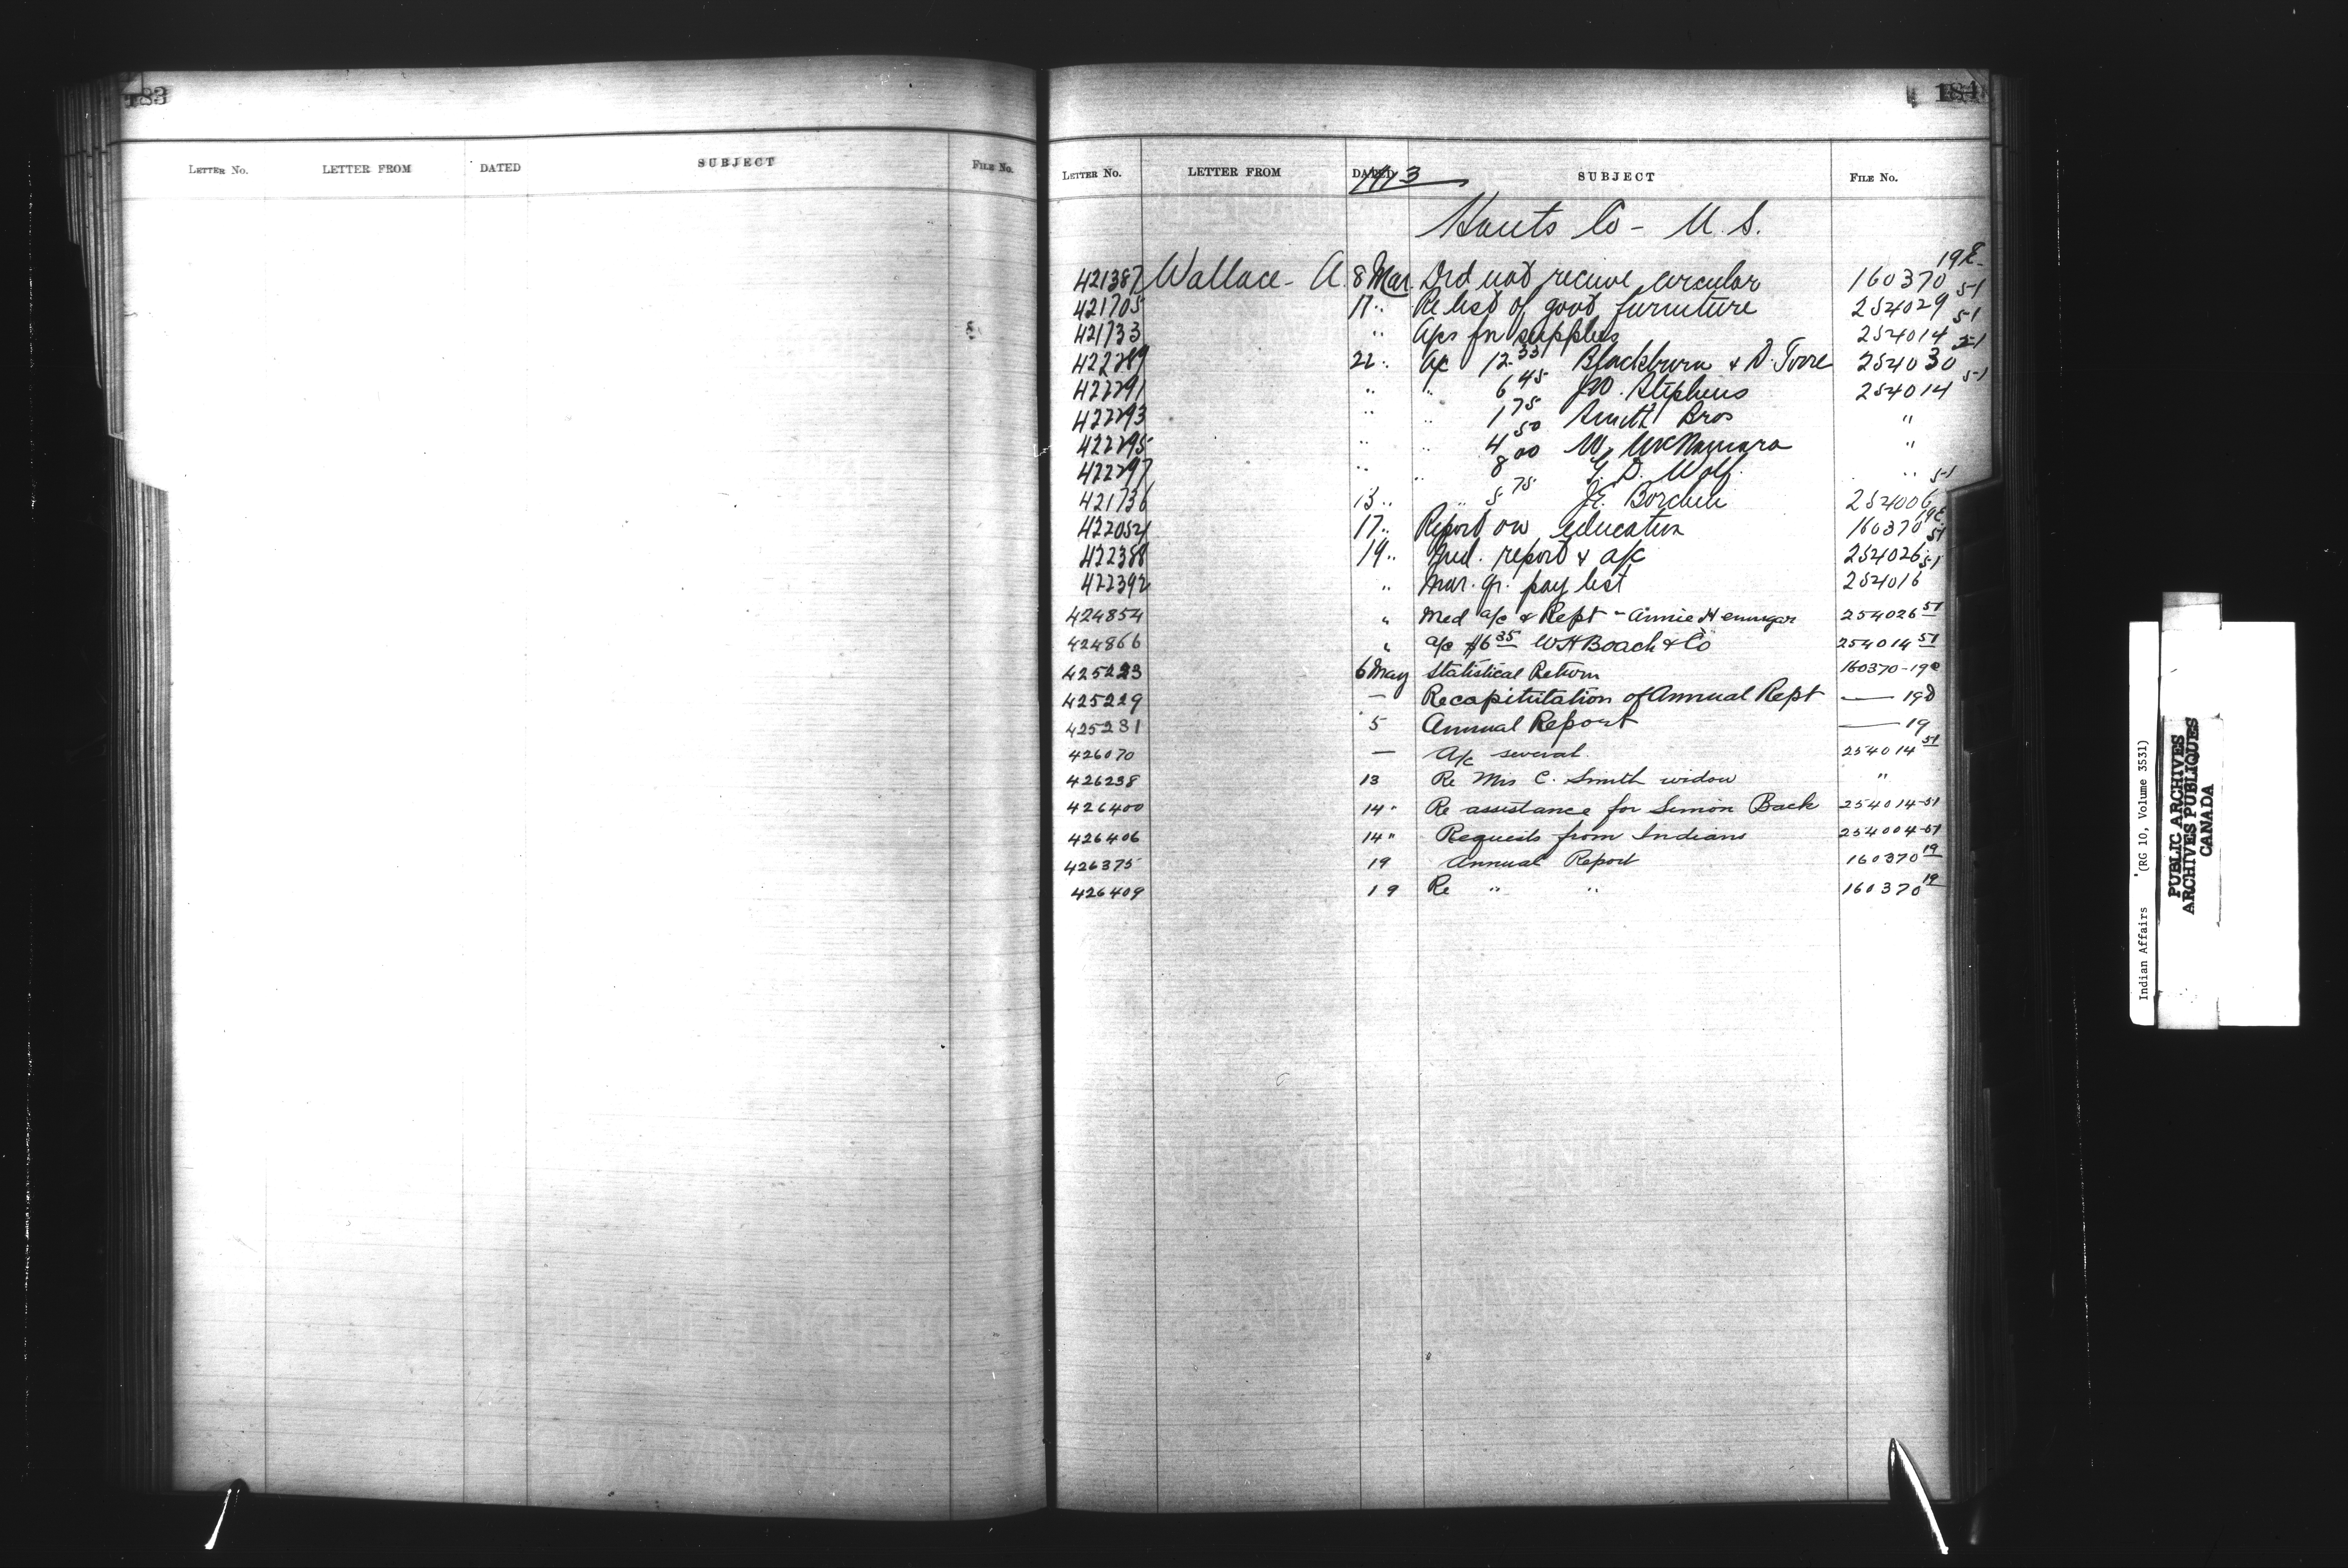 183
LETTER No. LETTER FROM DATED SUBJECT FILE No.
184
LETTER No. LETTER FROM DATED SUBJECT FILE No.
1913
Hants Co - N.S.
421387 Wallace - A. 8 Mar. Did not receive circular 160370 19E
421705 11 " Re list of govt furniture 254029 51
421733 " Aps for supplies 254014 51
422289 22 " A/c 12.33 Blackburn & D. 254030 51
422291 " " 6 45 J.W. Stephens 254014 51
422293 " " 1 75 Smith Bros "
422295 " " 4 50 W. McNamara "
422297 " " 8 00 G. D. Wolf "
421736 13 " " 5 75 254006 51
422054 17 " Report on education 160370 19E
422388 19 " Med. report & a/c 254026 51
422392 " Mar. qr. pay list 254016 51
424854 " Med a/c & Rept - Annie Hennigar 254026 51
424866 " a/c $6 35 W H Roach & Co 254014 51
425223 6 May Statistical Return 160370-19e
425229 — Recapitulation of Annual Rept — 19D
425231 5 Annual Report — 19
426070 — A/c several. 254014 51
426238 13 Re Mrs C. Smith widow "
426400 14 " Re assistance for Simon Back 254014-51
426406 14 " Requests from Indians 254004-51
426375 19 Annual Report 160370 19
426409 19 Re " " 160370 19
Indian Affairs (RG 10, Volume 3531)
PUBLIC ARCHIVES
ARCHIVES PUBLIQUES
CANADA